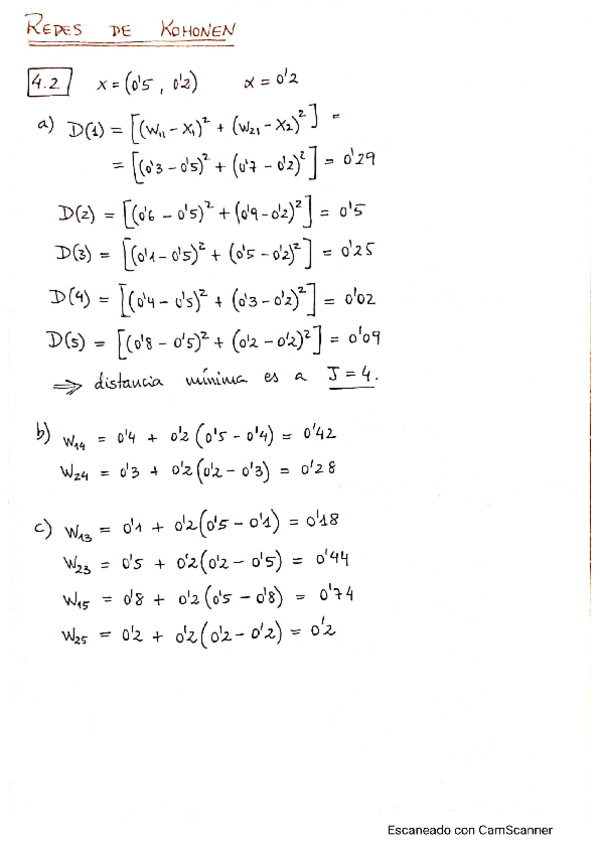 REDES DE KOHONEN
4.2 x = (0'5, 0'2) α = 0'2
a) D(1) = [(W₁₁ - X₁)² + (W₂₁ - X₂)²] =
= [(0'3 - 0'5)² + (0'7 - 0'2)²] = 0'29
D(2) = [(0'6 - 0'5)² + (0'9 - 0'2)²] = 0'5
D(3) = [(0'1 - 0'5)² + (0'5 - 0'2)²] = 0'25
D(4) = [(0'4 - 0'5)² + (0'3 - 0'2)²] = 0'02
D(5) = [(0'8 - 0'5)² + (0'2 - 0'2)²] = 0'09
⟹ distancia mínima es a J = 4.
b) W₁₄ = 0'4 + 0'2(0'5 - 0'4) = 0'42
W₂₄ = 0'3 + 0'2(0'2 - 0'3) = 0'28
c) W₁₃ = 0'1 + 0'2(0'5 - 0'1) = 0'18
W₂₃ = 0'5 + 0'2(0'2 - 0'5) = 0'44
W₁₅ = 0'8 + 0'2(0'5 - 0'8) = 0'74
W₂₅ = 0'2 + 0'2(0'2 - 0'2) = 0'2
Escaneado con CamScanner